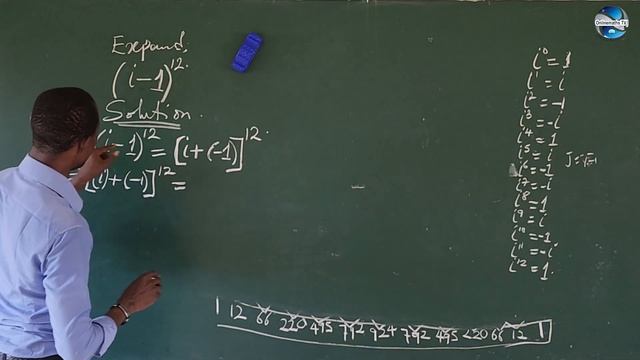 Expand
(i-1)^12.
Solution.
(i-1)^12 = [i+(-1)]^12.
[(i)+(-1)]^12 =
i^0 = 1
i^1 = i
i^2 = -1
i^3 = -i
i^4 = 1
i^5 = i
i^6 = -1
i^7 = -i
i^8 = 1
i^9 = i
i^10 = -1
i^11 = -i
i^12 = 1.
J=√-1
1 12 66 220 495 792 924 792 495 220 66 12 1
Onlinemaths TV